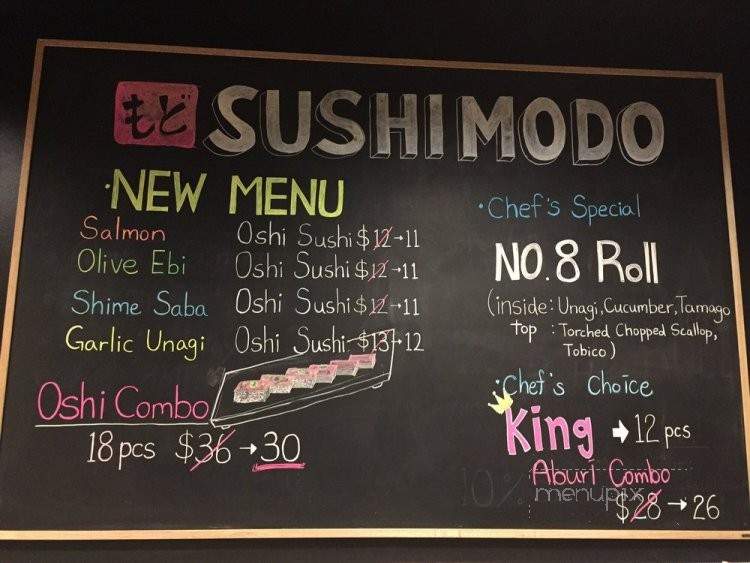 もど SUSHI MODO
·NEW MENU
Salmon Oshi Sushi $12→11
Olive Ebi Oshi Sushi $12→11
Shime Saba Oshi Sushi $12→11
Garlic Unagi Oshi Sushi $13→12
Oshi Combo
18pcs $36→30
·Chef's Special
NO.8 Roll
(inside: Unagi, Cucumber, Tamago
top : Torched Chopped Scallop,
Tobico)
·Chef's Choice
King → 12 pcs
Aburi Combo
10% menupix
$28→26